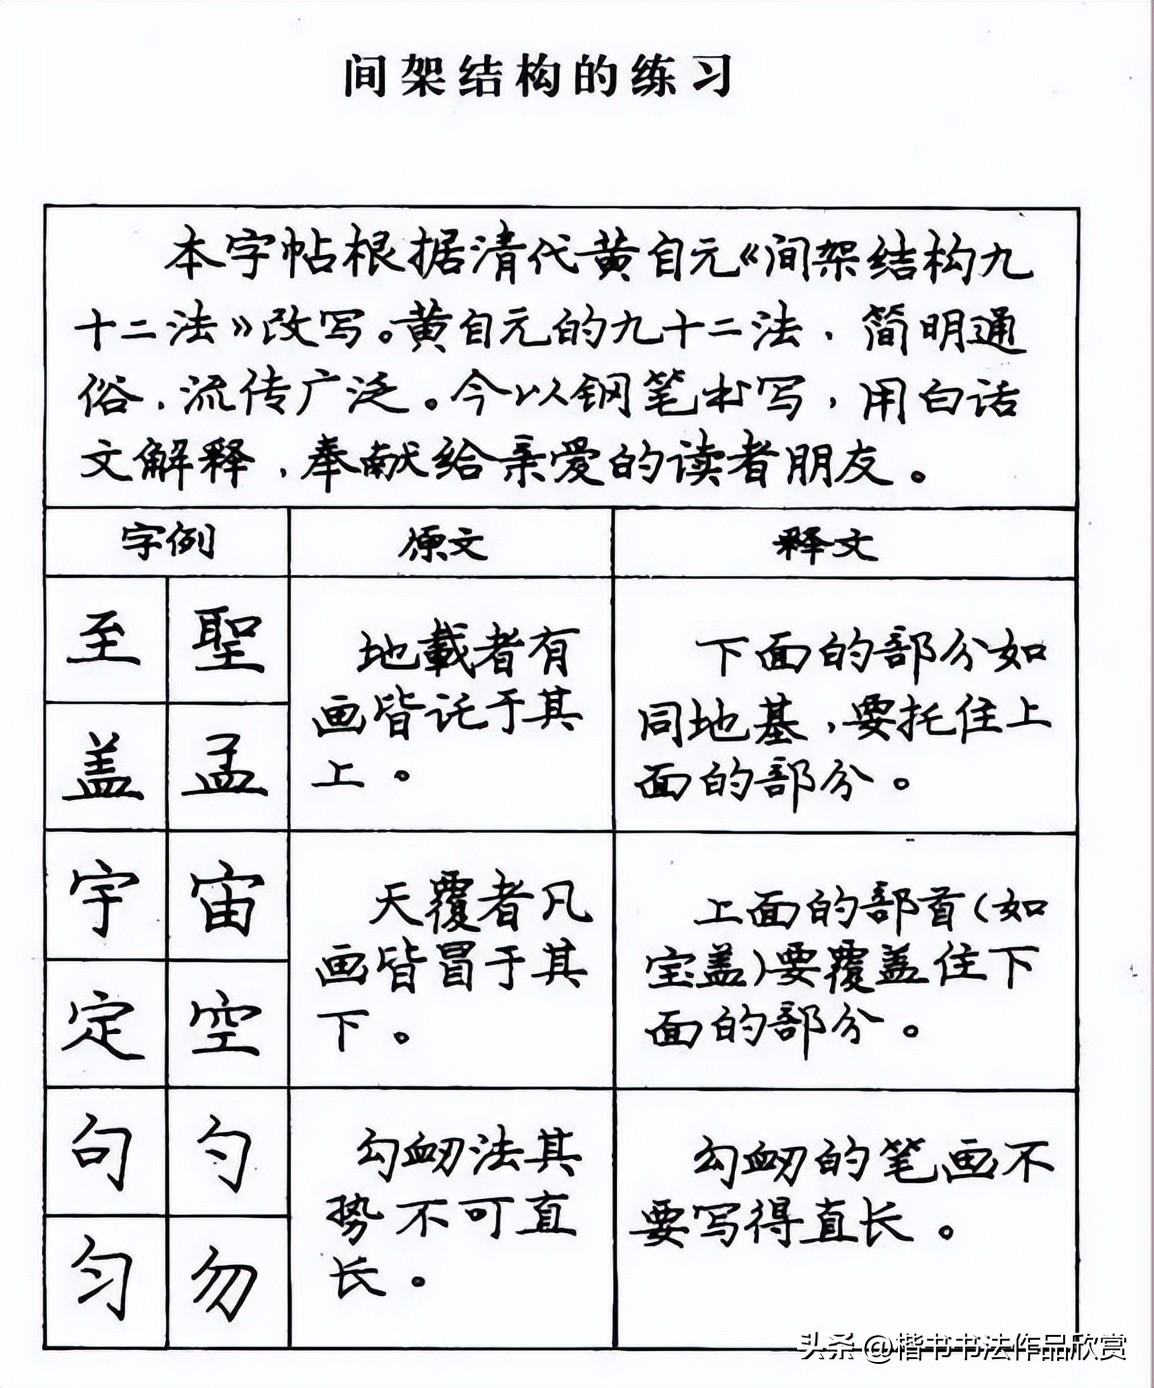 间架结构的练习
本字帖根据清代黄自元《间架结构九
十二法》改写。黄自元的九十二法，简明通
俗，流传广泛。今以钢笔书写，用白话
文解释，奉献给亲爱的读者朋友。
字例 原文 释文
至 聖
盖 孟
地載者有
画皆讬于其
上。
下面的部分如
同地基，要托住上
面的部分。
宇 宙
定 空
天覆者凡
画皆冒于其
下。
上面的部首(如
宝盖)要覆盖住下
面的部分。
句 勺
匀 勿
勾衂法其
势不可直
长。
勾衂的笔画不
要写得直长。
头条 @楷书书法作品欣赏